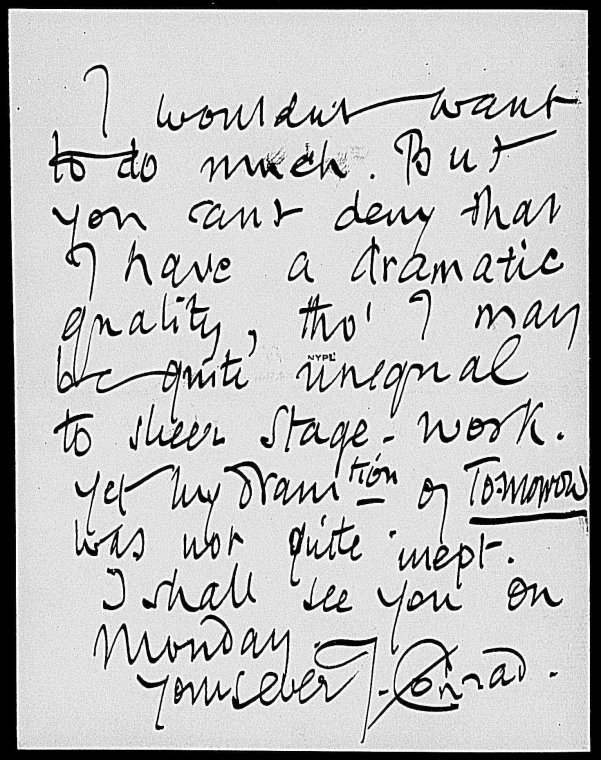 I wouldn't want
to do much. But
you can't deny that
I have a dramatic
quality, tho' I may
NYPL
be quite unequal
to sheer stage-work.
Yet my dramtion of Tomorrow
was not quite inept.
I shall see you on
Monday.
Yours ever J. Conrad.